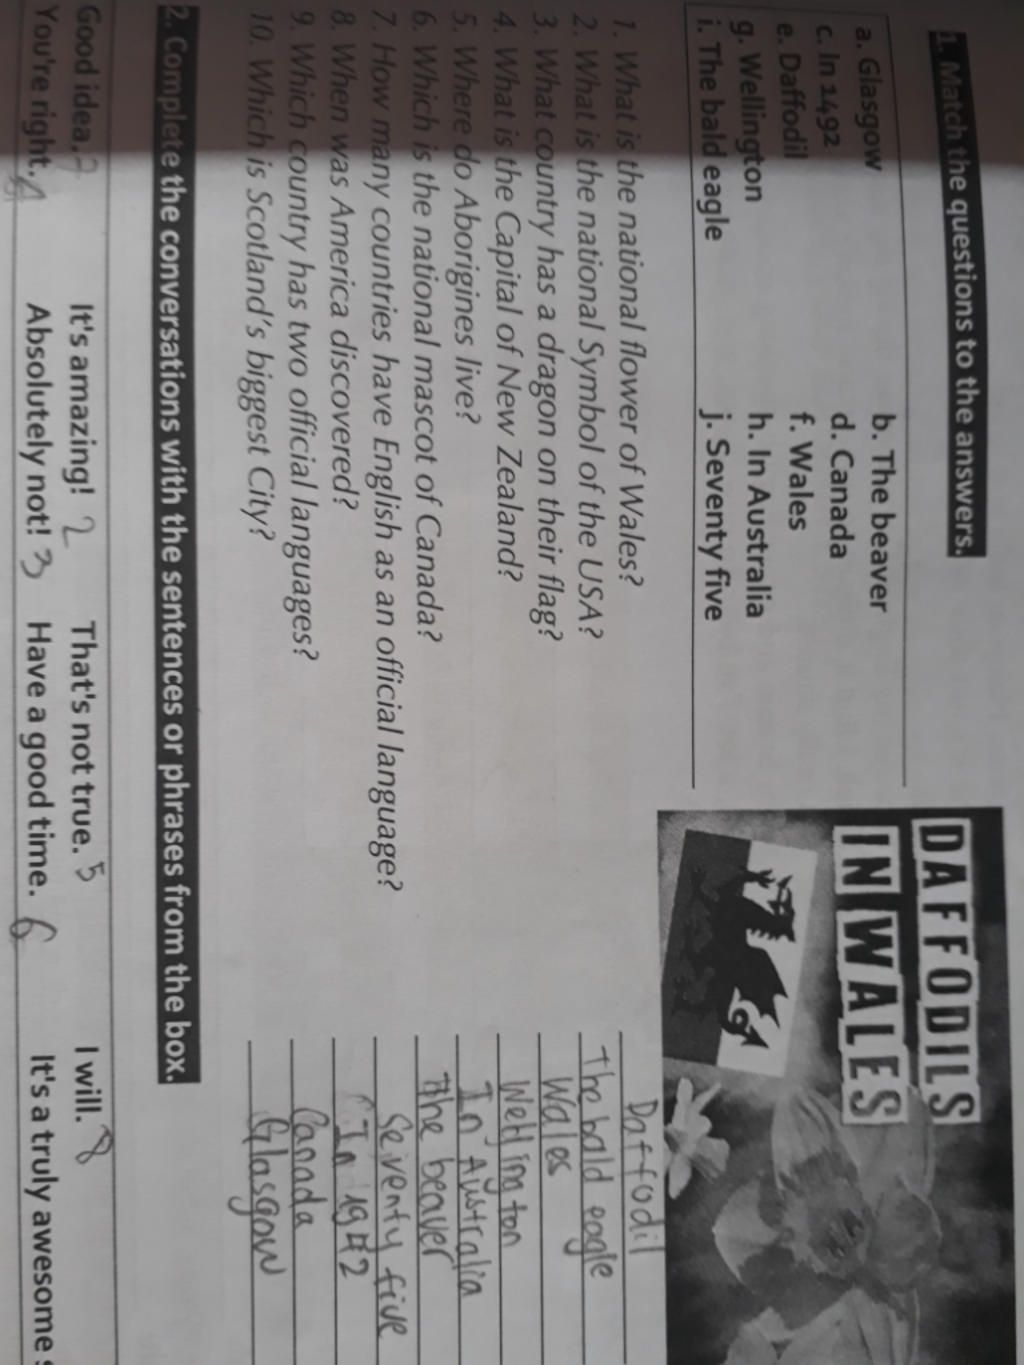 1. Match the questions to the answers.
a. Glasgow b. The beaver
c. In 1492 d. Canada
e. Daffodil f. Wales
g. Wellington h. In Australia
i. The bald eagle j. Seventy five
DAFFODILS
IN WALES
1. What is the national flower of Wales? Daffodil
2. What is the national Symbol of the USA? The bald eagle
3. What country has a dragon on their flag? Wales
4. What is the Capital of New Zealand? Wellington
5. Where do Aborigines live? In Australia
6. Which is the national mascot of Canada? the beaver
7. How many countries have English as an official language? Seventy five
8. When was America discovered? In 1942
9. Which country has two official languages? Canada
10. Which is Scotland's biggest City? Glasgow
2. Complete the conversations with the sentences or phrases from the box.
Good idea. 7 It's amazing! 2 That's not true. 5 I will. 8
You're right. 4 Absolutely not! 3 Have a good time. 6 It's a truly awesome